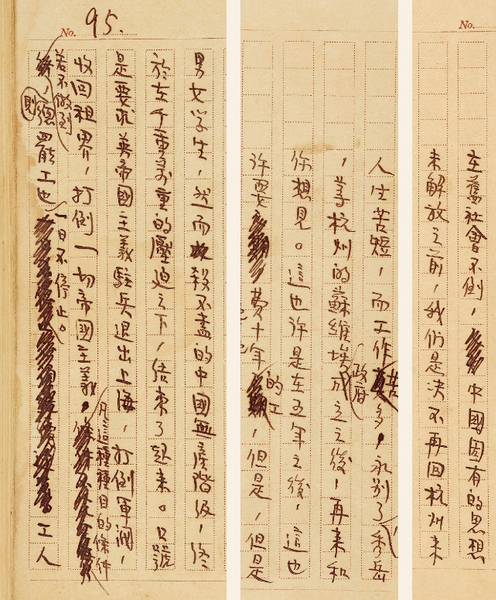 No.
在舊社會不倒,中國固有的思想
未解放之前,我們是決不再回杭州來
人生苦短,而工作苦多,永別了和岳
,等杭州的蘇維埃政府成立之後,再來和
你想見。這也許是在五年之後,這也
許要費十年的工,但是,但是
No. 95.
男女学生,然而殺不盡的中國無產階級,終
於在千重萬重的壓迫之下,結束了起來。口號
是要求英帝國主義駐兵退出上海,打倒軍閥,
收回租界,打倒一切帝國主義。凡這種種目的條件
若不做到,則總罷工也一日不停止。工人